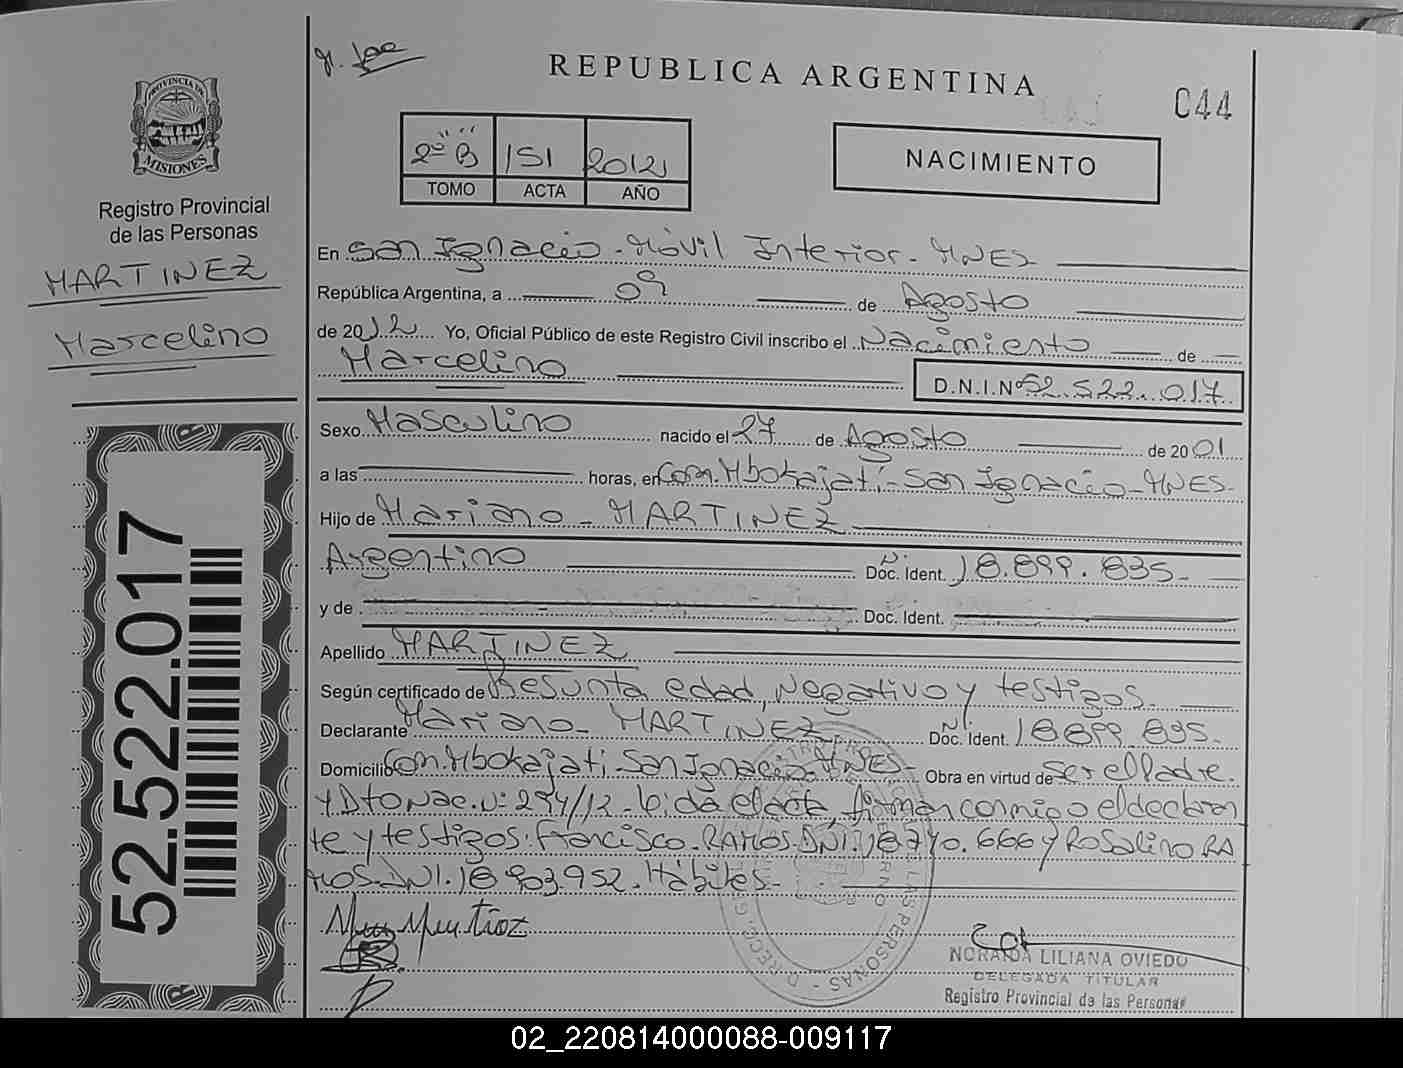 REPUBLICA ARGENTINA
044
PROVINCIA DE
MISIONES
Registro Provincial
de las Personas
MARTINEZ
Marcelino
52.522.017
2º "B" 151 2012
TOMO ACTA AÑO
NACIMIENTO
En San Ignacio - Móvil Interior - MNES
República Argentina, a 09 de Agosto
de 2012 Yo, Oficial Público de este Registro Civil inscribo el Nacimiento de
Marcelino D.N.I.Nº 52.522.017
Sexo Masculino nacido el 27 de Agosto de 2001
a las horas, en Com. Mbokajatí - San Ignacio - MNES -
Hijo de Mariano - MARTINEZ
Argentino Doc. Ident. 18.899.835 -
y de Doc. Ident.
Apellido MARTINEZ
Según certificado de Presunta edad, Negativo y testigos.
Declarante Mariano - MARTINEZ Doc. Ident. 18.899.835 -
Domicilio Com. Mbokajatí San Ignacio - MNES - Obra en virtud de ser el Padre.
Y Dto Nac. Nº 294/12 - Leída el acta, firman conmigo el declaran
te y testigos: Francisco - RAMOS - DNI. 18.790.666 y Rosalino RA
MOS - DNI. 18.903.952. Hábiles -
NORAIDA LILIANA OVIEDO
DELEGADA TITULAR
Registro Provincial de las Personas
02_220814000088-009117